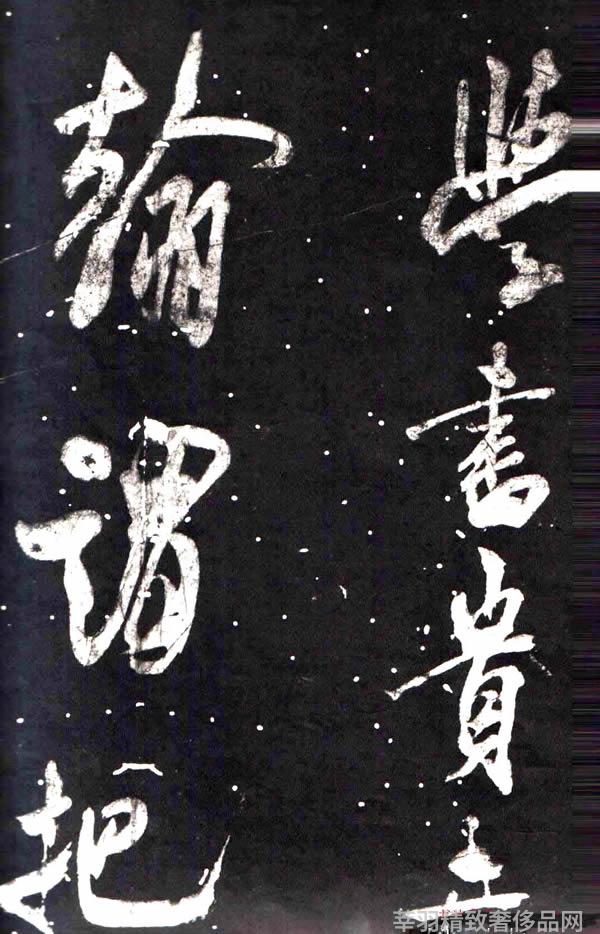 學書貴弄
翰謂把
幸羽精致奢侈品网